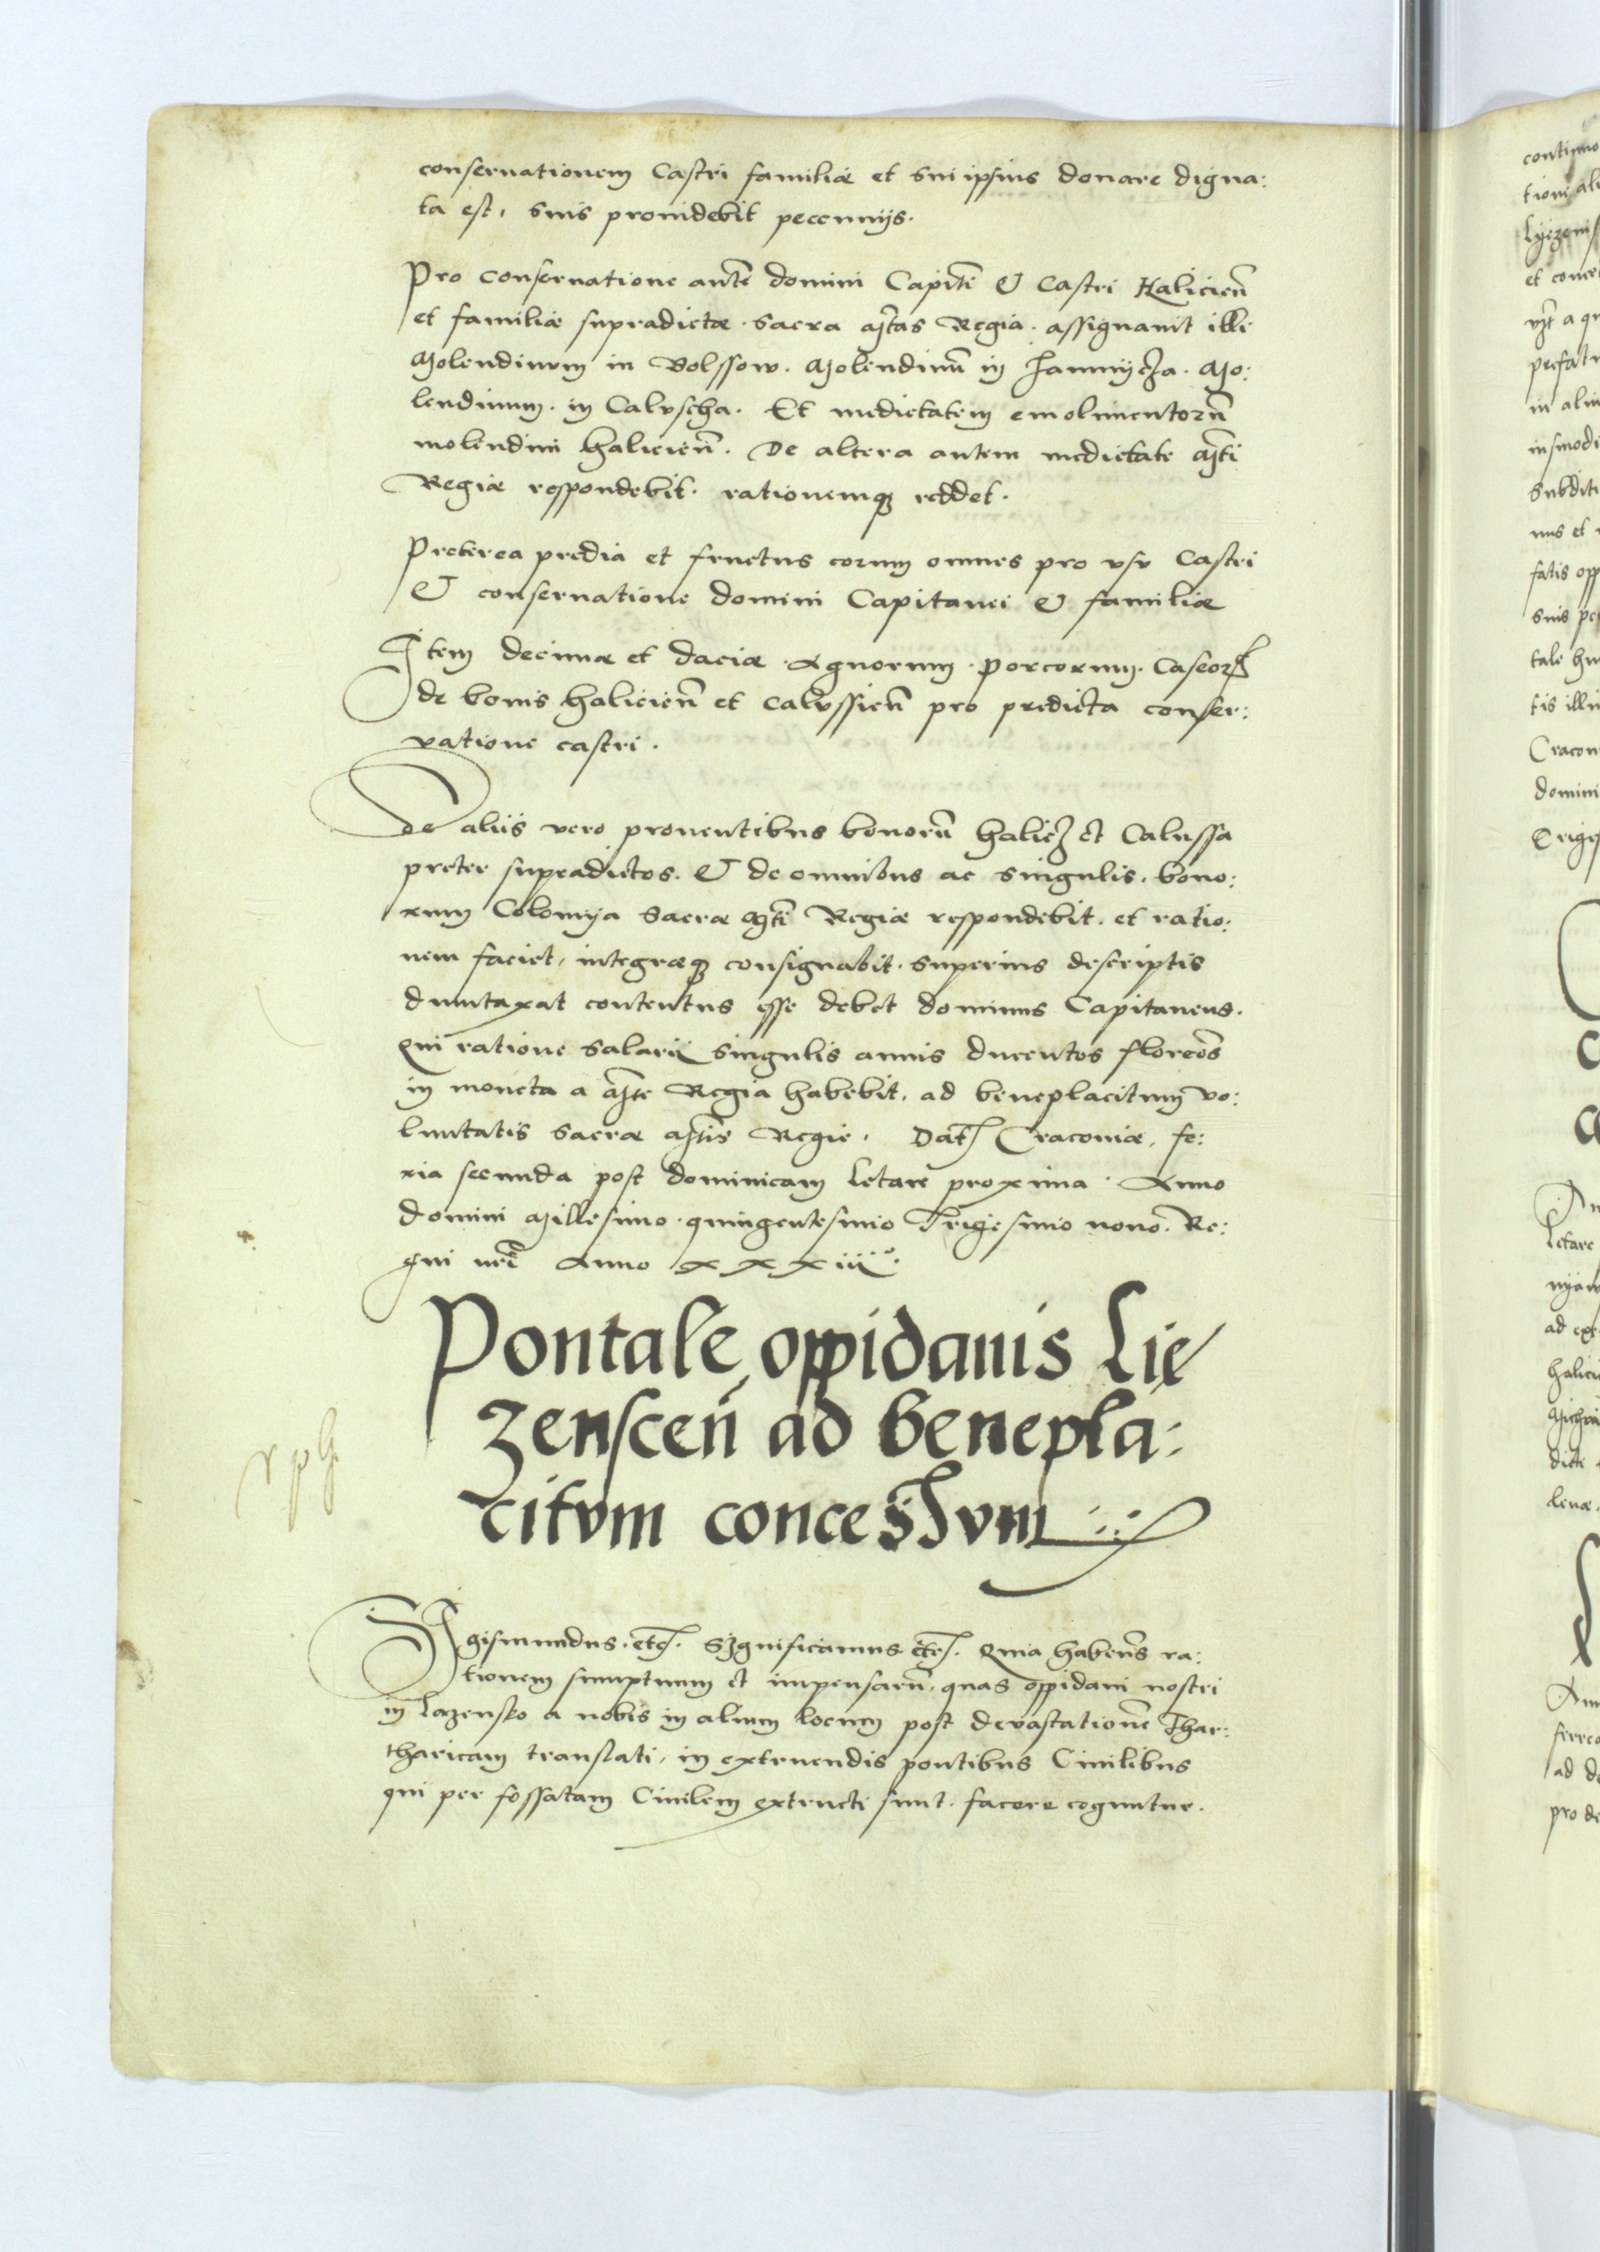 conseruationem Castri familiæ et sui ipsius donare digna:
ta est, suis prouidebit peccunijs.
Pro conseruatione auté domini Capitĕ & Castri Halicień
et familiæ supradictæ. Sacra Mt̃as Regia. assignauit illi
Molendinum in Bolssow. Molendinũ in Jamnycza. Mo:
lendinum. in Calvscha. Et medietatem emolimentorũ
molendini halicień. De altera autem medietate Mt̃i
Regiæ respondebit. rationemqȝ reddet.
Preterea predia et fructus eorum omnes pro vsv Castri
& conseruatione domini Capitanei & familiæ
Item decimæ et daciæ. Agnorum. porcorum. Caseorꝝ
de bonis halicień et calvssień pro predicta conser:
vatione castri.
De aliis vero prouentibus bonorũ halicz et Calussa
preter supradictos. & de omnibus ac singulis. bono:
rum Colomya Sacræ Mt̃i Regiæ respondebit. et ratio:
nem faciet, integræqȝ consignabit. superius descriptis
duntaxat contentus esse debet dominus Capitaneus.
Qui ratione Salarij singulis annis ducentos floreõs
in moneta a Mt̃e Regia habebit. ad beneplacitum vo:
luntatis Sacræ Mt̃is Regie. Dat̃ Cracouiæ, fe:
ria secunda post dominicam letare proxima. Anno
domini Millesimo. quingentesimo Trigesimo nono. Re:
gni nr̃i Anno xxxiii°.
Pontale oppidanis Lie
zensceń ad benepla:
citvm concessvm
Sigismundus. etc̃. Significamus etc̃. Quia habeñs ra:
tionem sumptuum et impensarũ, quas oppidani nostri
in Lazensko a nobis in alium locum post devastationẽ Thar:
tharicam translati, in extruendis pontibus Ciuilibus
qui per fossatam Ciuilem extructi sunt. facere coguntur.